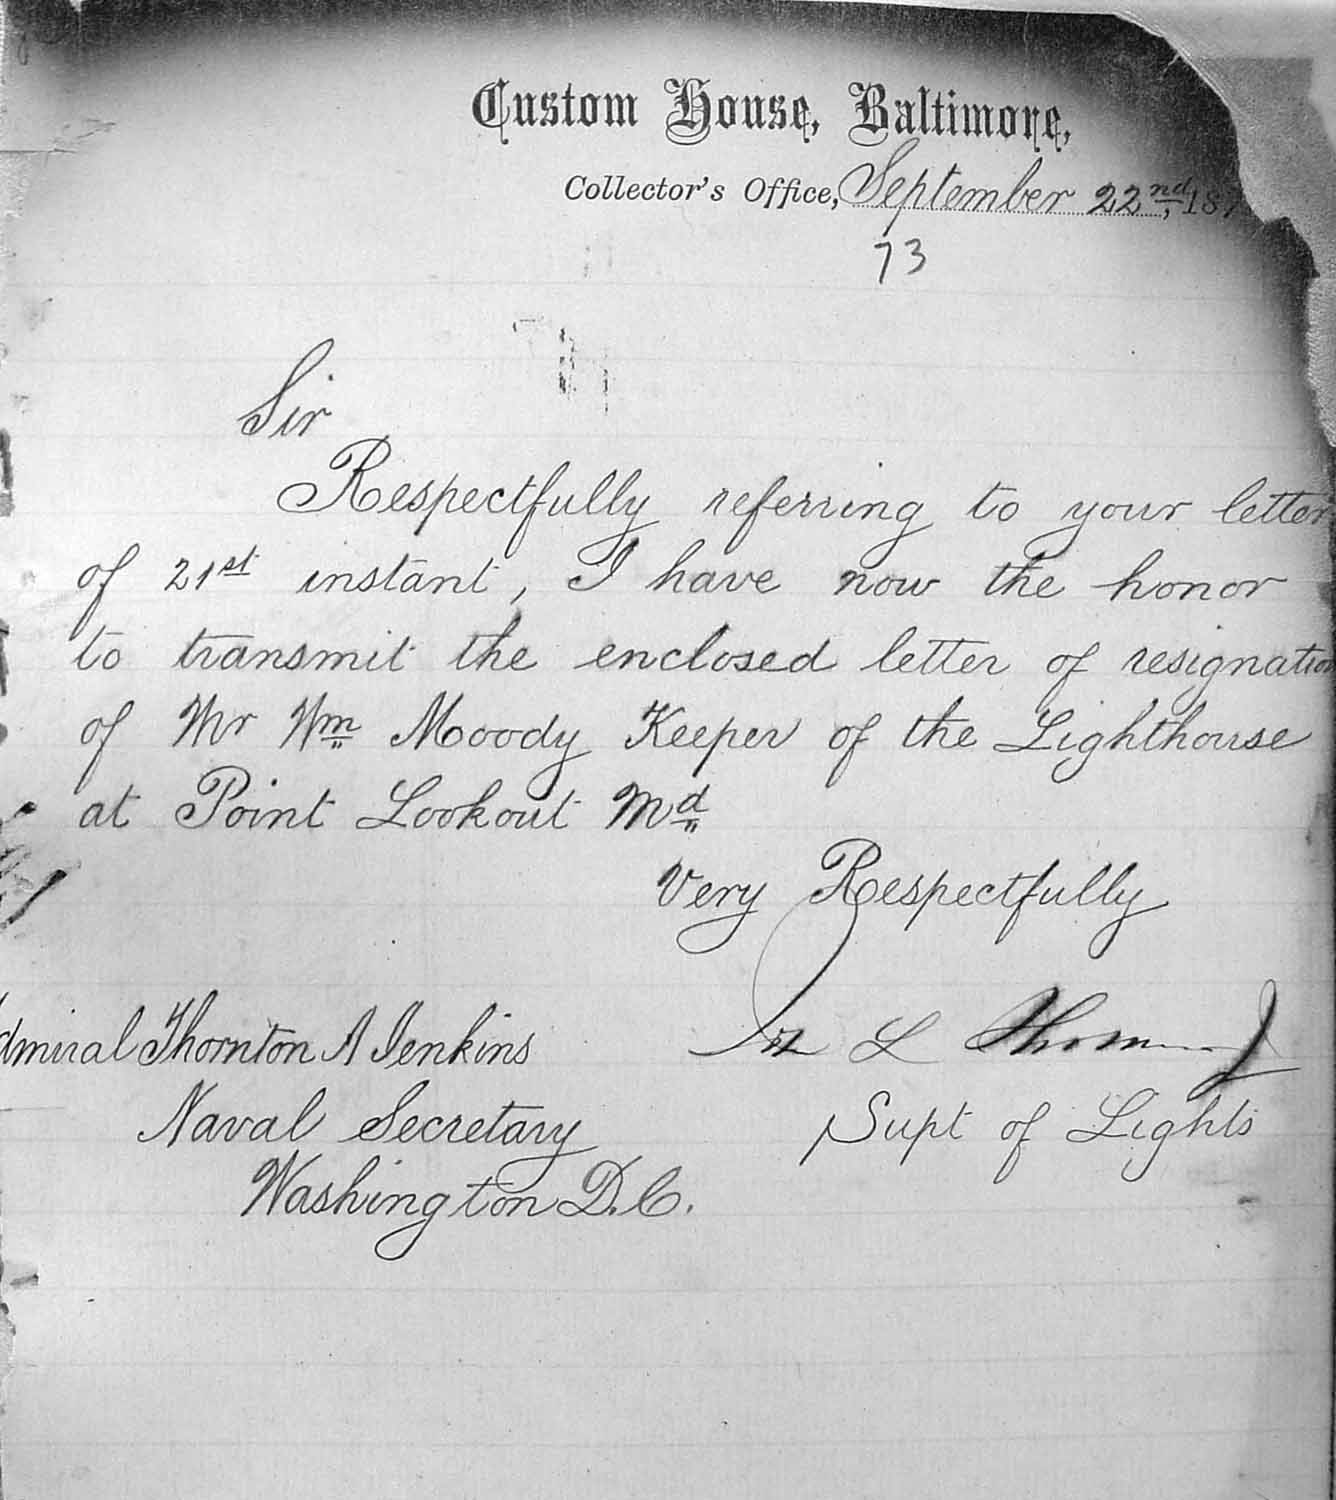 Custom House, Baltimore,
Collector's Office, September 22nd, 187
73
Sir
Respectfully referring to your letter
of 21st instant, I have now the honor
to transmit the enclosed letter of resignation
of Mr Wm Moody Keeper of the Lighthouse
at Point Lookout Md
Very Respectfully
Admiral Thornton A Jenkins
L Thomas
Naval Secretary
Supt of Lights
Washington D.C.